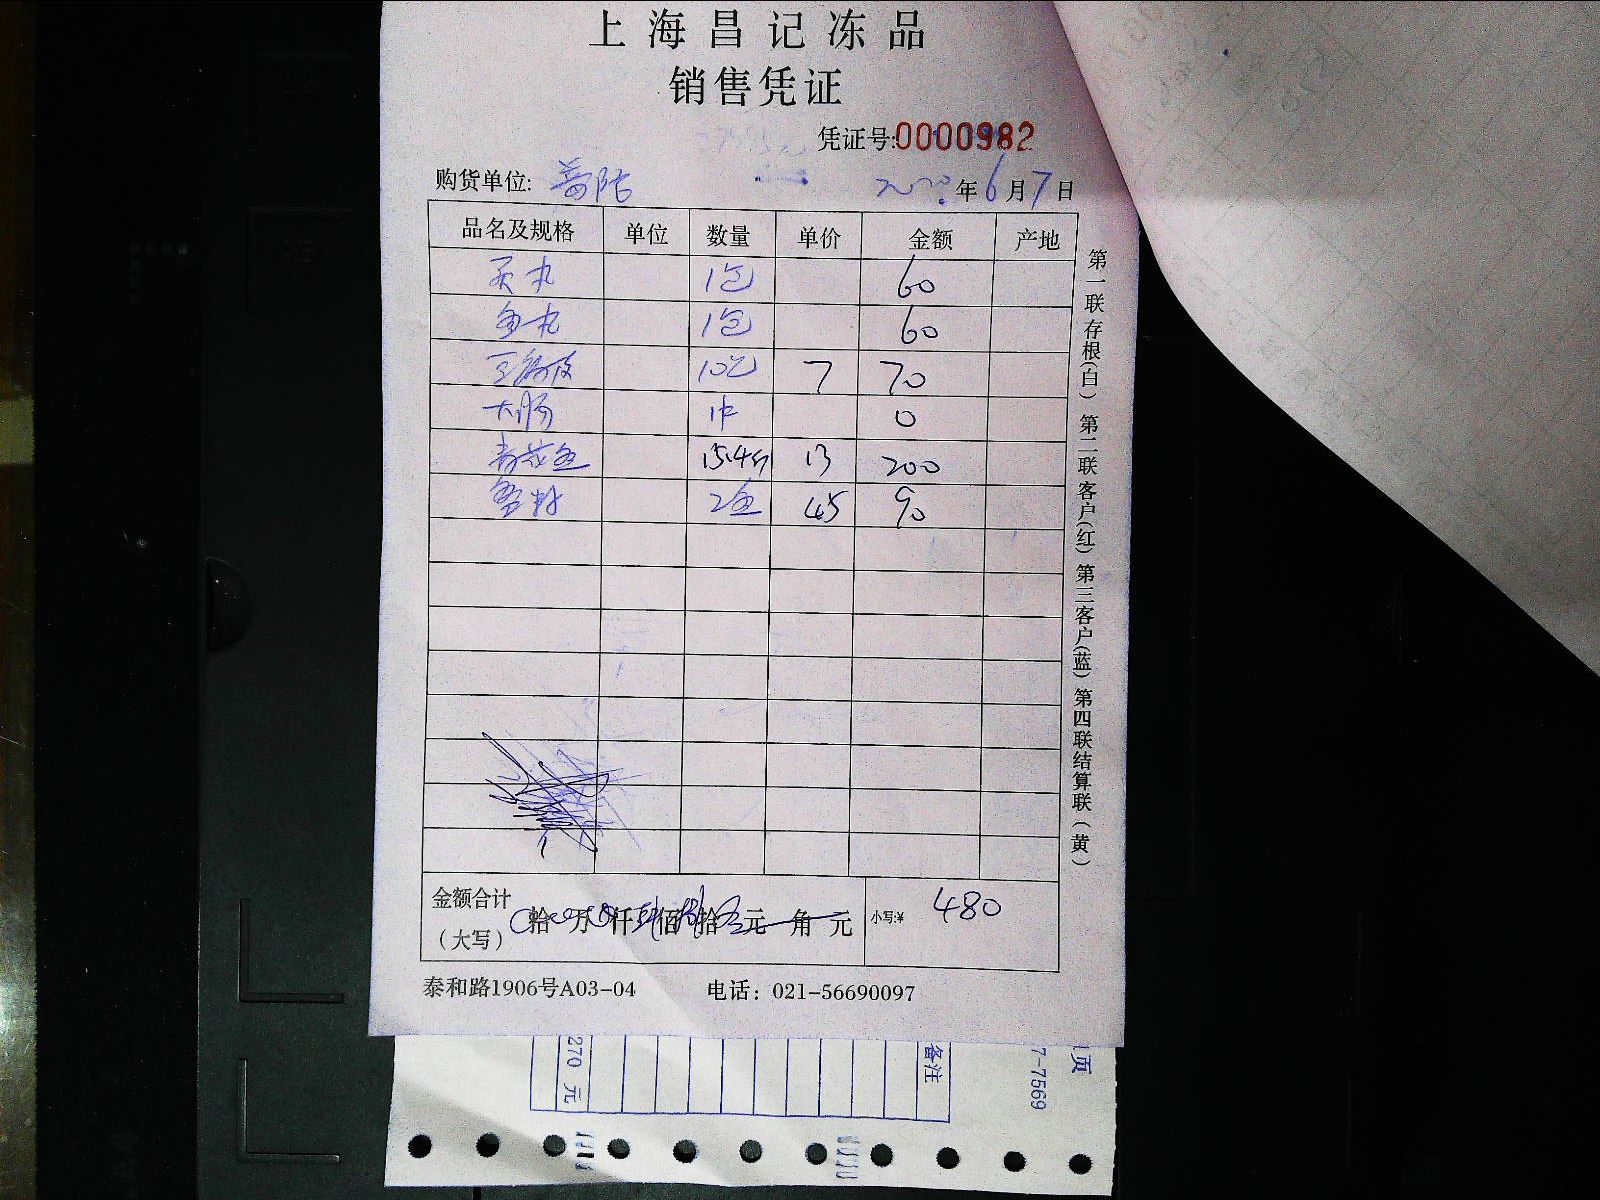 上海昌记冻品
销售凭证
凭证号:0000982
购货单位:
年6月7日
品名及规格 单位 数量 单价 金额 产地
1包 60
鱼丸 1包 60
10包 7 70
大肠 1件 0
15.4斤 13 200
2盒 45 90
金额合计
(大写) 拾 万 仟 佰 拾 元 角 元 小写:¥ 480
泰和路1906号A03-04 电话：021-56690097
第一联存根(白) 第二联客户(红) 第三客户(蓝) 第四联结算联(黄)
270 元
备注
7-7569
页